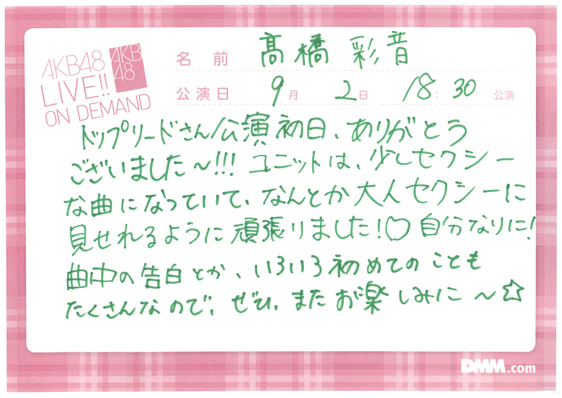 AKB48
LIVE!!
ON DEMAND
AKB
48
名前 髙橋 彩音
公演日 9月 2日 18:30 公演
トップリードさん公演初日、ありがとう
ございました〜!!! ユニットは、少しセクシー
な曲になっていて、なんとか大人セクシーに
見せれるように頑張りました!♡ 自分なりに!
曲中の告白とか、いろいろ初めてのことも
たくさんなので、ぜひ、またお楽しみに〜☆
DMM.com